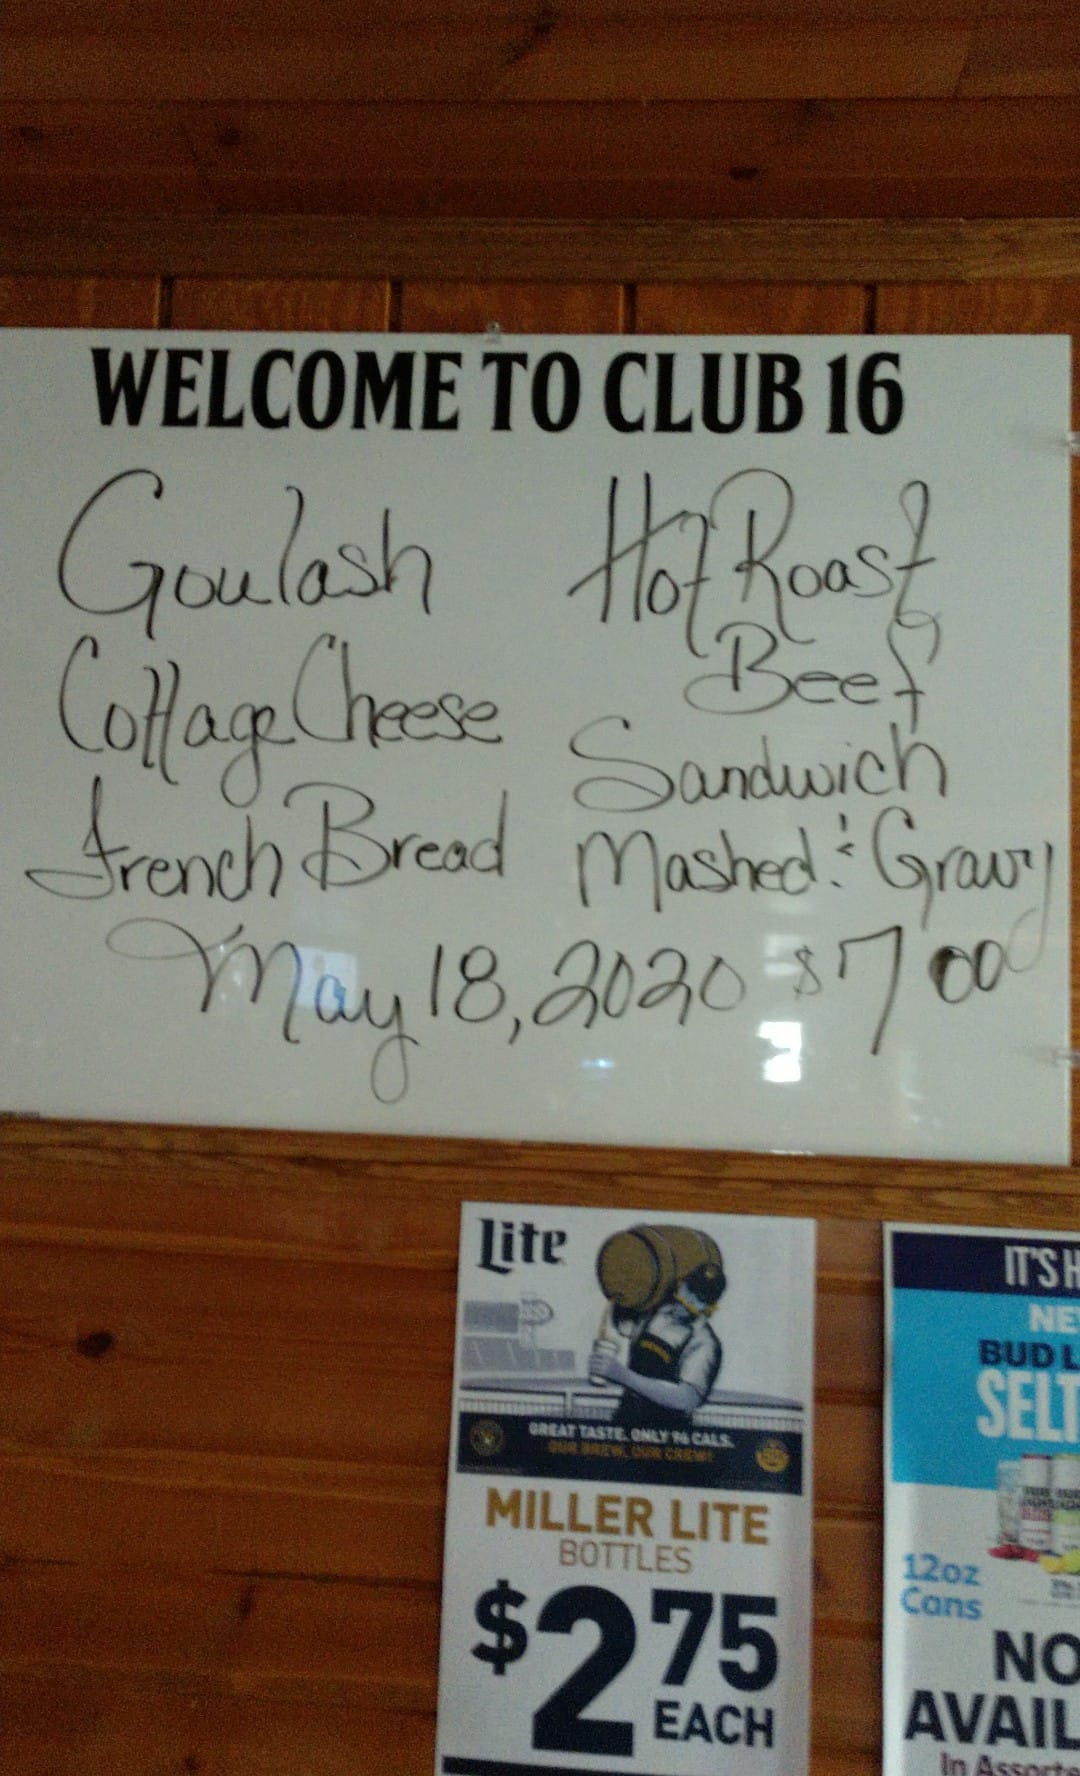 WELCOME TO CLUB 16
Goulash
Cottage Cheese
French Bread
Hot Roast
Beef
Sandwich
Mashed & Gravy
May 18, 2020 $7.00
Lite
GREAT TASTE. ONLY 96 CALS.
OUR BREW, OUR CREW!
MILLER LITE
BOTTLES
$2 75
EACH
IT'S H
NE
BUD L
SELT
12oz
Cans
NO
AVAIL
In Assorte